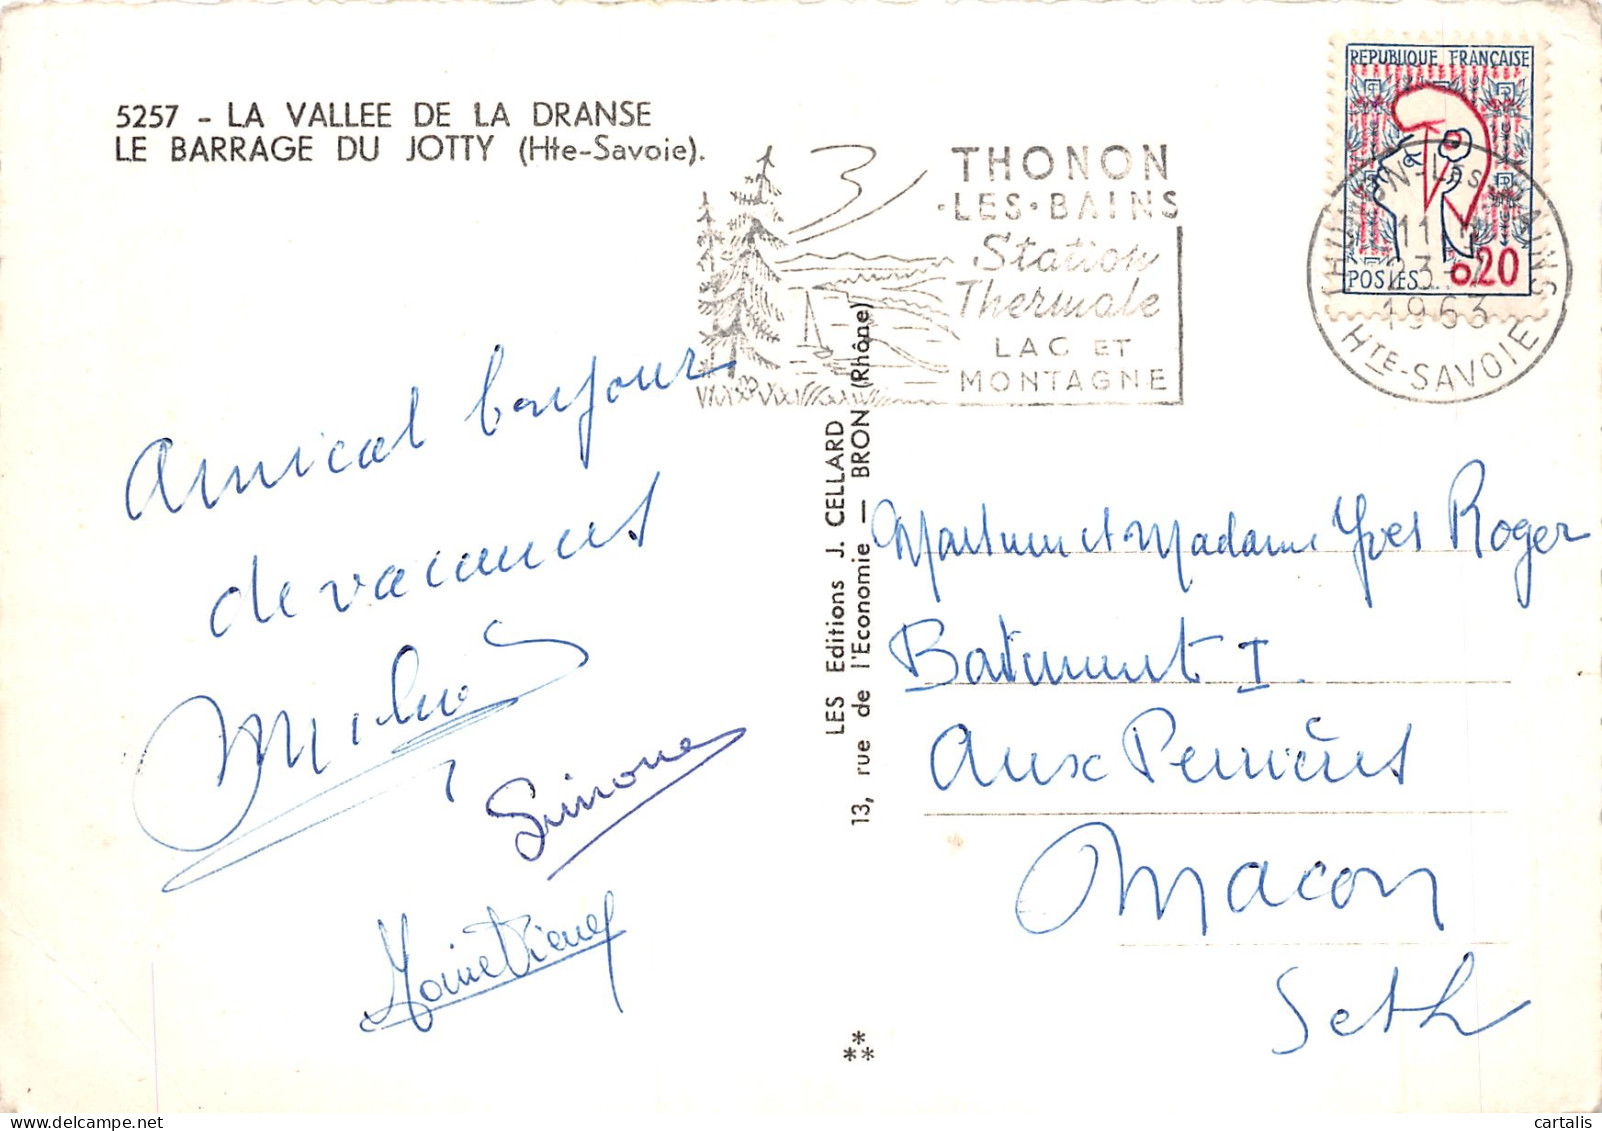 5257 - LA VALLEE DE LA DRANSE
LE BARRAGE DU JOTTY (Hte-Savoie).
THONON
·LES·BAINS
Station
Thermale
LAC ET
MONTAGNE
REPUBLIQUE FRANÇAISE
POSTES
0,20
THONON-LES-BAINS
11H
23-7
1963
HTE-SAVOIE
Amical bonjour
de vacances
Simone
LES Editions J. CELLARD
13, rue de l'Economie — BRON (Rhône)
Monsieur et Madame Yves Roger
Batiment I.
Aux Perrières
Macon
S et L
cartalis